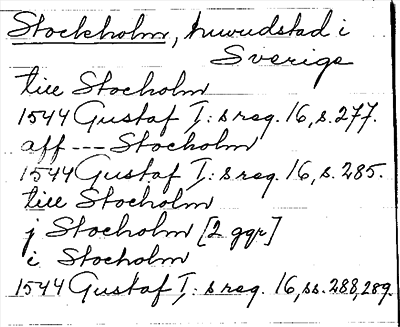 Stockholm, huvudstad i
Sverige
till Stocholm
1544 Gustaf I:s reg. 16, s. 277.
aff --- Stocholm
1544 Gustaf I:s reg. 16, s. 285.
till Stocholm
j Stocholm [2 ggr]
i Stocholm
1544 Gustaf I:s reg. 16, ss. 288, 289.